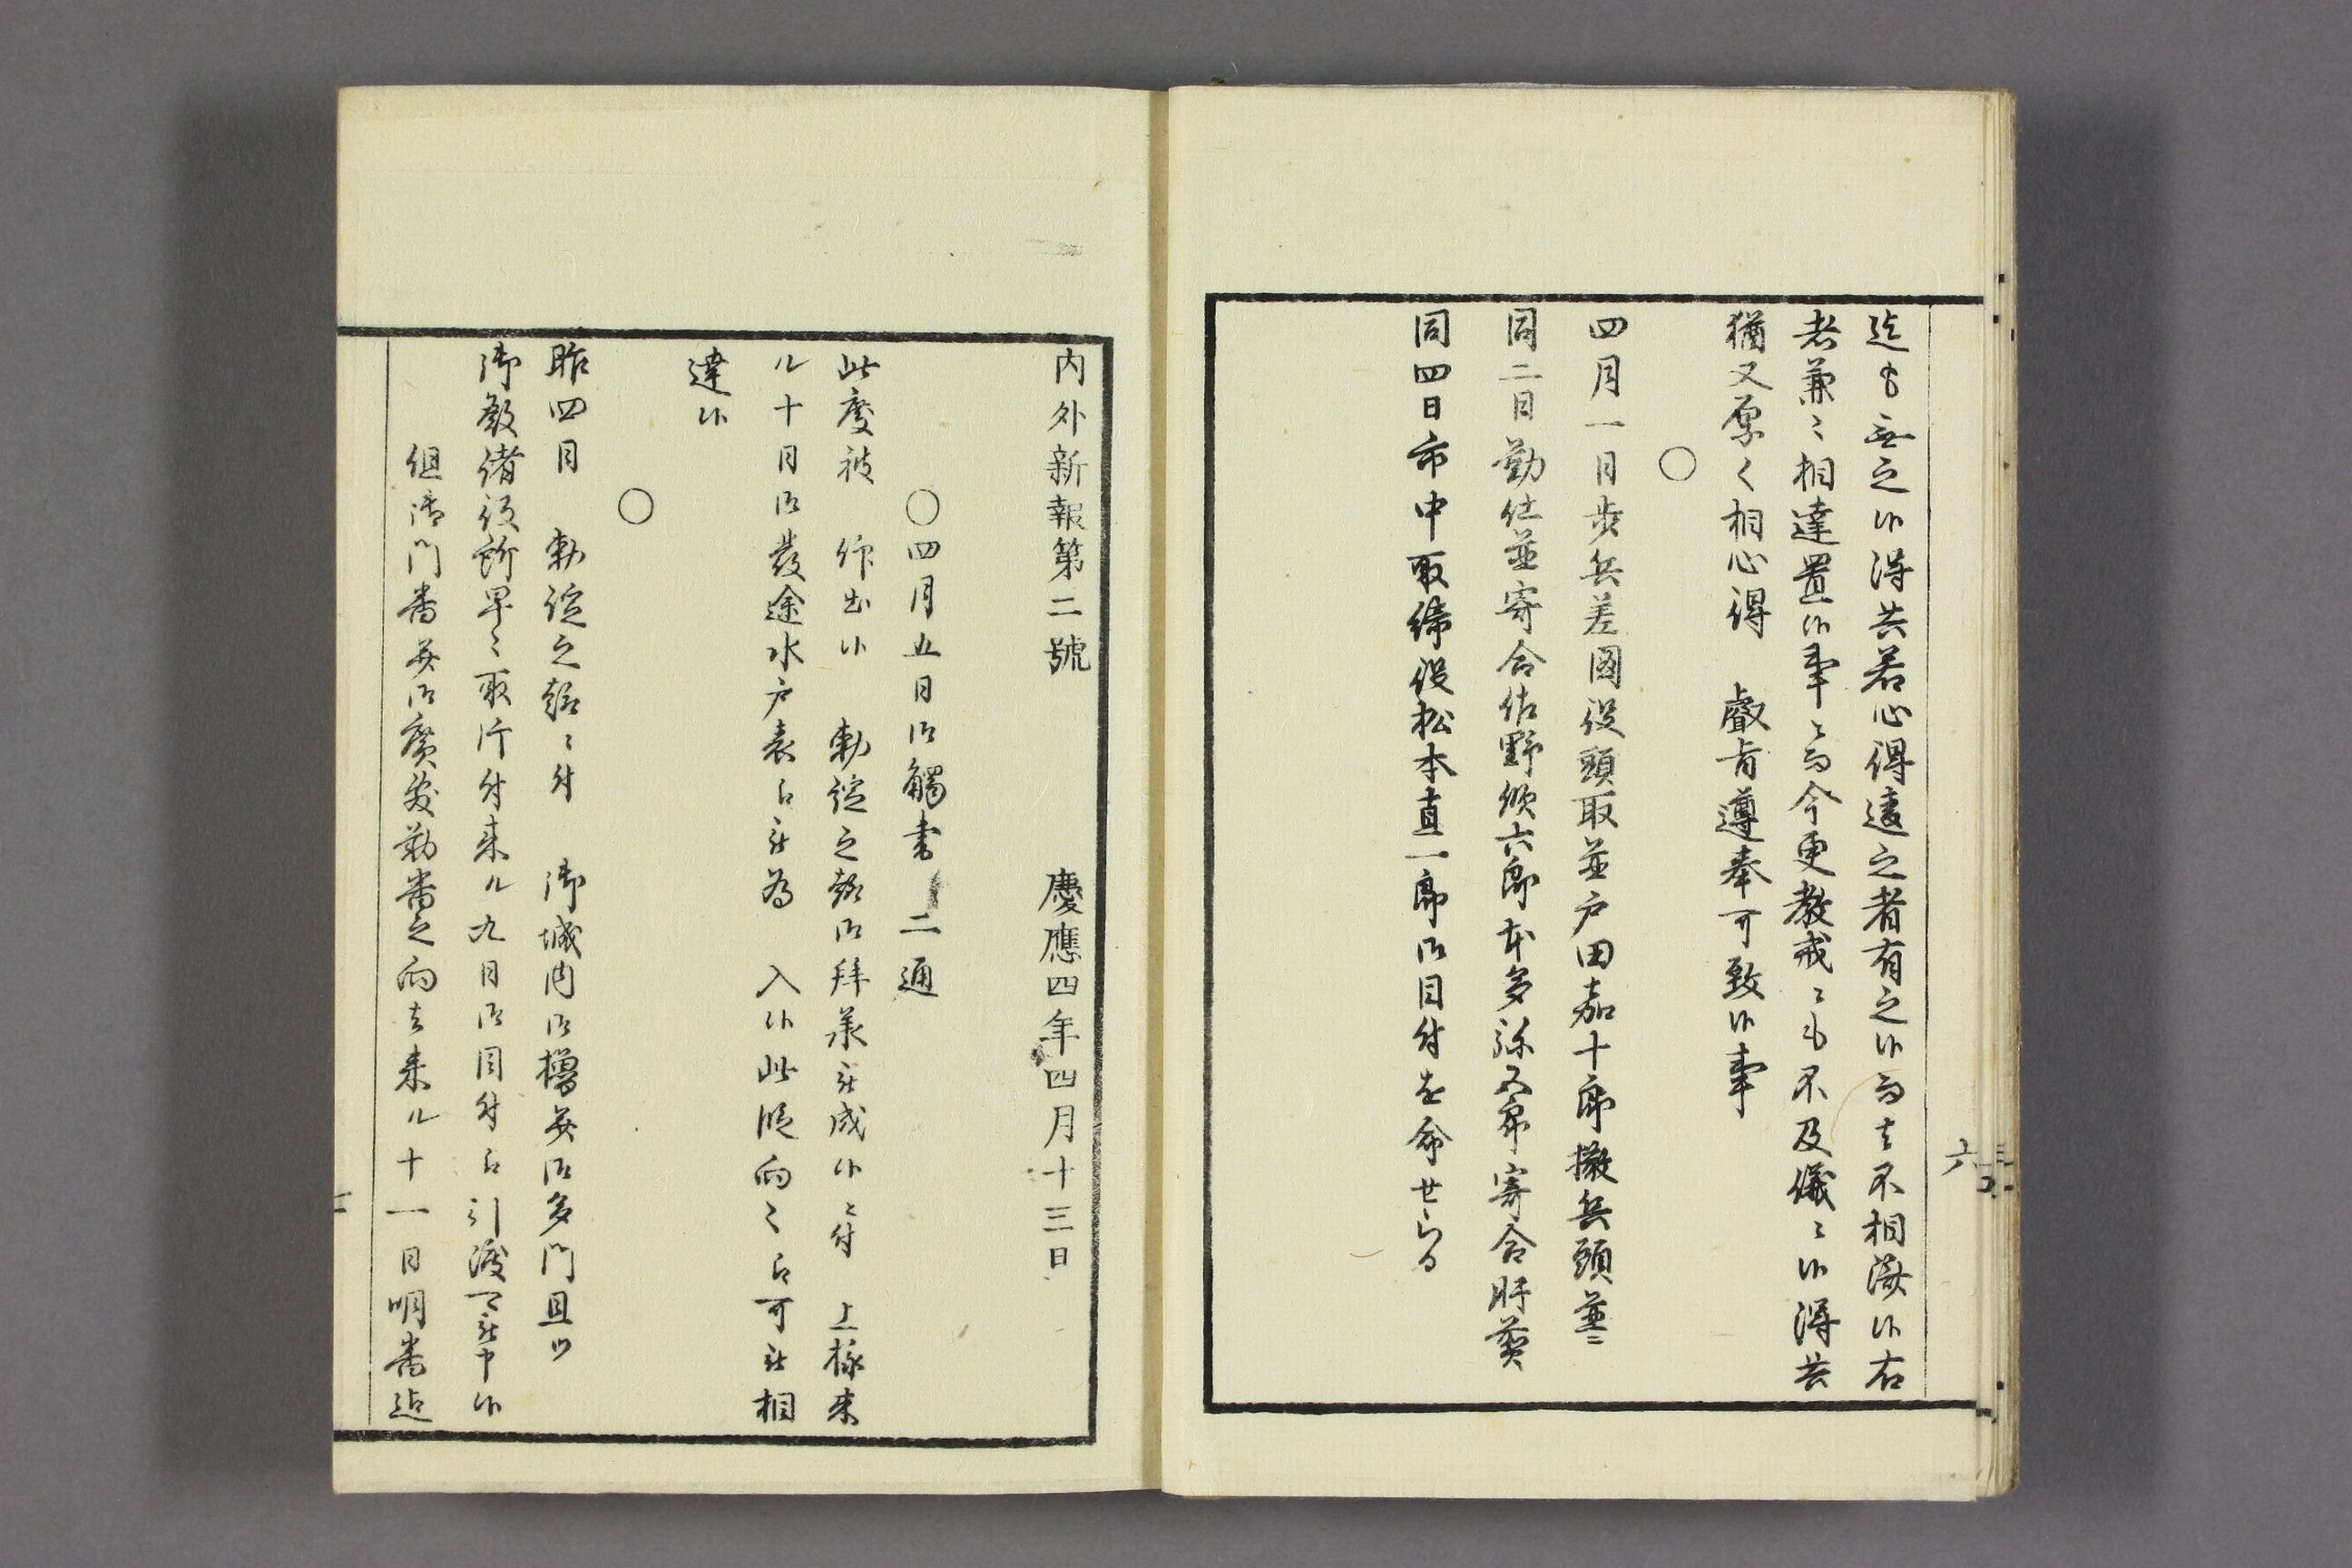 迄も無之候得共若心得違之者有之候而者不相済候右
者兼々相達置候事ニ而今更教戒ニも不及儀ニ候得共
猶又厚く相心得　叡旨遵奉可致候事
〇
四月一日歩兵差図役頭取並戸田嘉十郎撒兵頭並ニ
同二日勤仕並寄合佐野欽六郎本多弥五郎寄合肝煎
同四日市中取締役松本直一郎御目付を命せらる
六
内外新報第二號　慶應四年四月十三日
〇四月五日御觸書　二通
此度被　仰出候　勅諚之趣御拝承被成候ニ付　上様来
ル十日御發途水戸表江被為　入候此段向々江可被相
達候
〇
昨四日　勅諚之趣ニ付　御城内御櫓并御多門且ツ
御殿諸役所早々取片付来ル九日御目付江引渡可被申候
但御門番并御廣敷勤番之向者来ル十一日明番迄